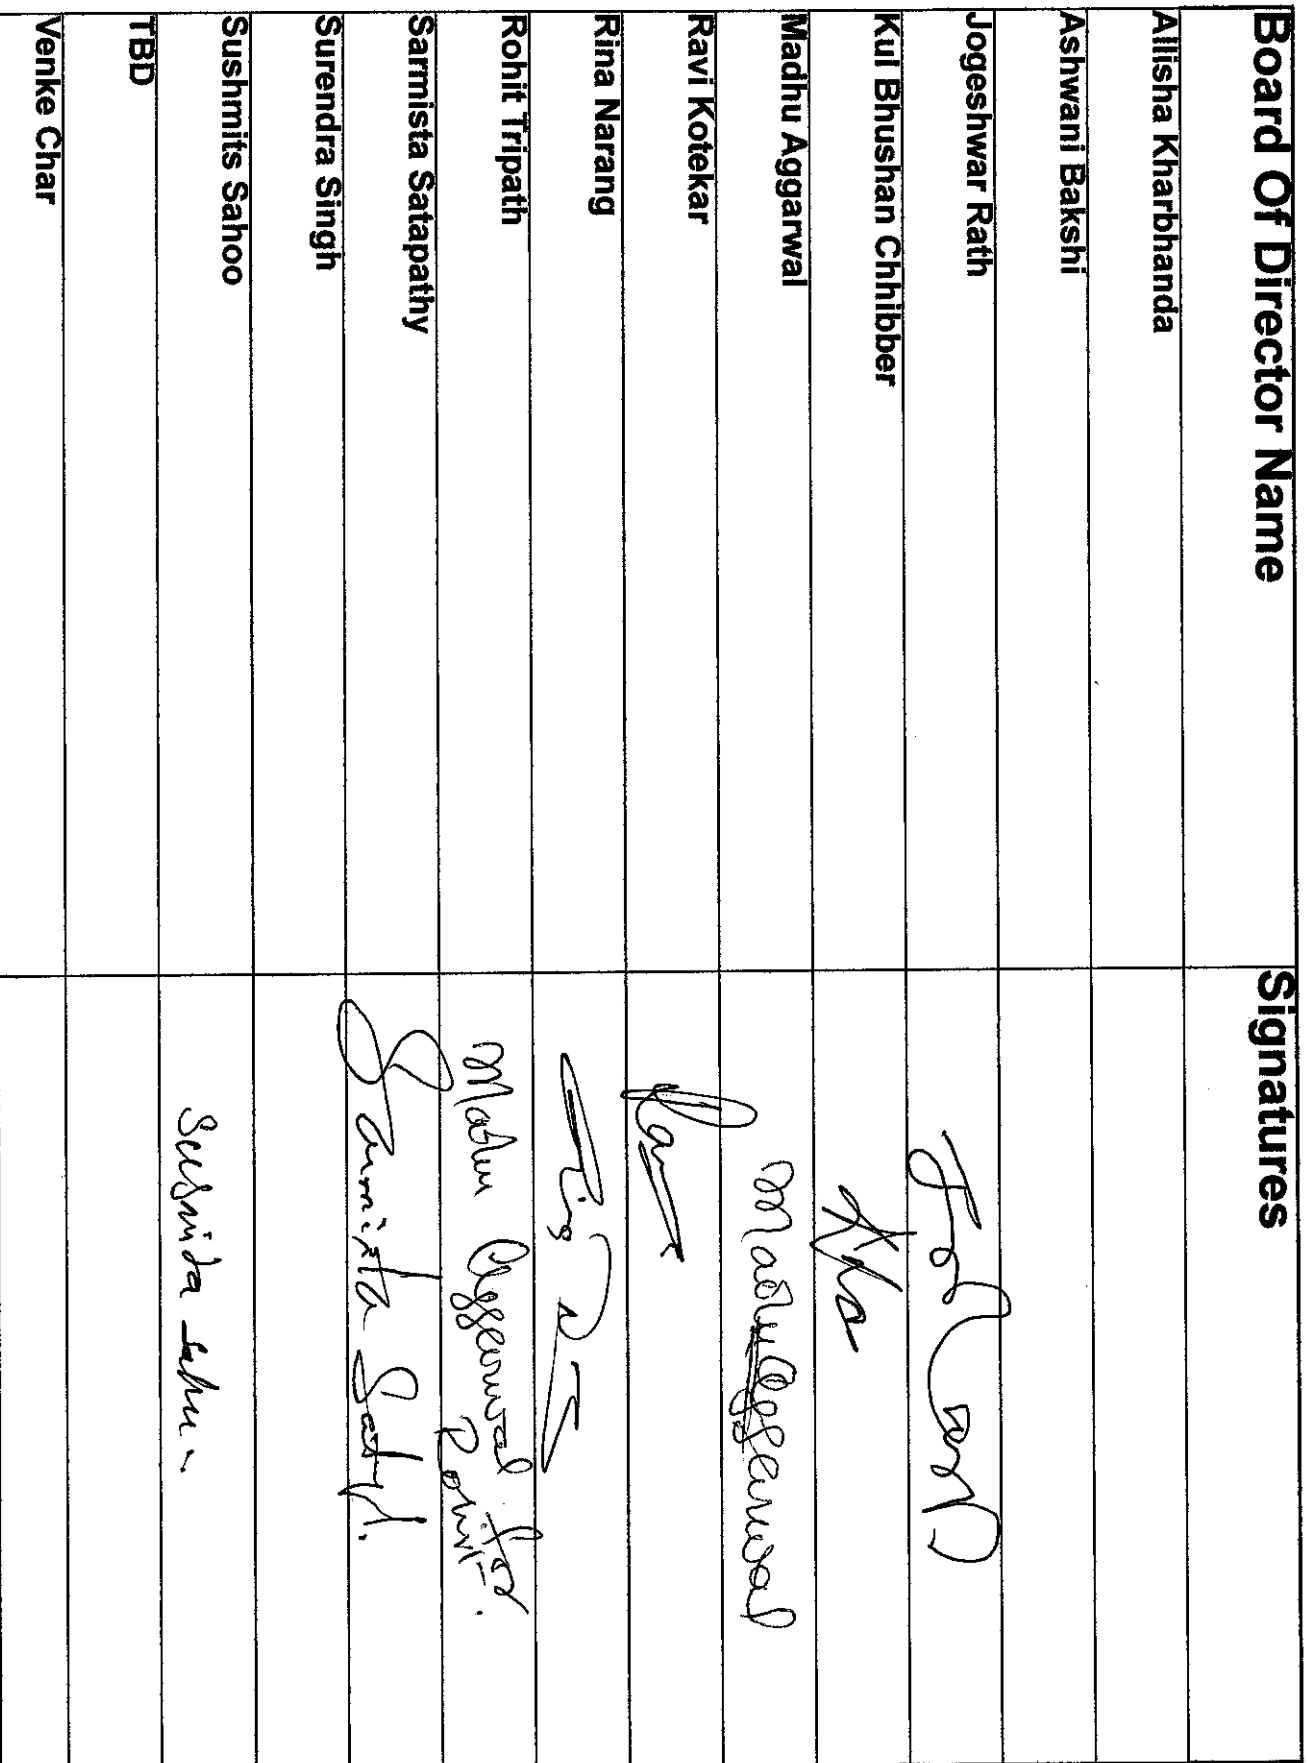 Board Of Director Name Signatures
Allisha Kharbhanda
Ashwani Bakshi
Jogeshwar Rath
Kul Bhushan Chhibber
Madhu Aggarwal Madhu Aggarwal
Ravi Kotekar
Rina Narang
Rohit Tripath Madhu Aggarwal for Rohit.
Sarmista Satapathy Sarmista
Surendra Singh
Sushmits Sahoo
TBD
Venke Char